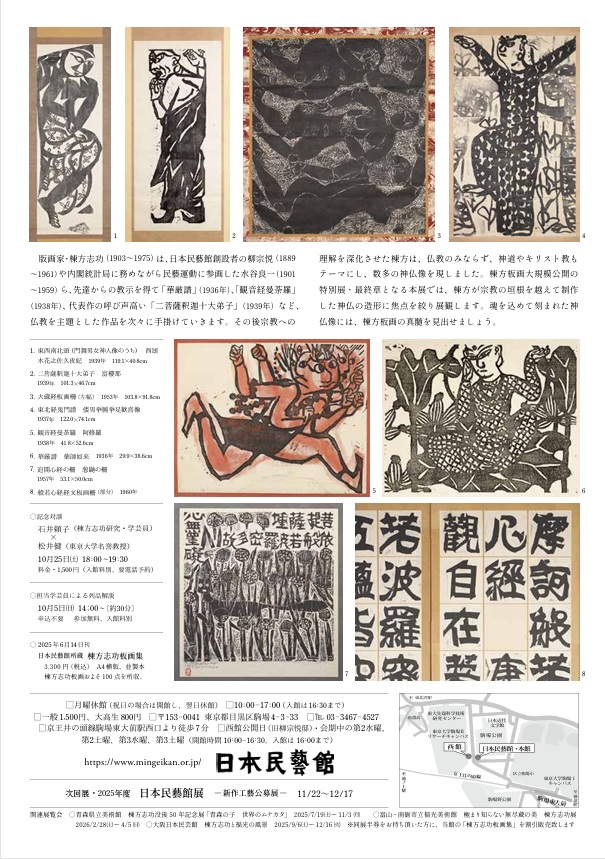 1
2
3
4
版画家・棟方志功（1903～1975）は、日本民藝館創設者の柳宗悦（1889
～1961）や内閣統計局に務めながら民藝運動に参画した水谷良一（1901
～1959）ら、先達からの教導を得て「華厳譜」（1936年）、「観音経曼荼羅」
（1938年）、代表作の呼び声高い「二菩薩釈迦十大弟子」（1939年）など、
仏教を主題とした作品を次々に手掛けていきます。その後宗教への
理解を深化させた棟方は、仏教のみならず、神道やキリスト教も
テーマにし、数多の神仏像を現しました。棟方板画大規模公開の
特別展・最終章となる本展では、棟方が宗教の垣根を越えて制作
した神仏の造形に焦点を絞り展観します。魂を込めて刻まれた神
仏像には、棟方板画の真髄を見出せましょう。
1. 東西南北頌（門舞男女神人像のうち） 西頌
木花之佐久夜妃 1939年 119.1×40.8cm
2. 二菩薩釈迦十大弟子 富樓那
1939年 101.3×46.7cm
3. 大蔵経板画柵（左幅） 1953年 103.8×91.8cm
4. 東北経鬼門譜
1937年 122.0×74.1cm
5. 観音経曼荼羅 阿修羅
1938年 41.8×52.6cm
6. 華厳譜 薬師如来 1936年 29.9×38.6cm
7. 追開心経の柵
1957年 53.1×50.0cm
8. 般若心経経文板画柵（部分） 1960年
5
6
〇記念対談
石井頼子（棟方志功研究・学芸員）
×
松井健（東京大学名誉教授）
10月25日(土) 18:00–19:30
料金・1,500円（入館料別、要電話予約）
〇担当学芸員による列品解説
10月5日(日) 14:00～〔約30分〕
申込不要 参加無料、入館料別
〇2025年6月14日刊
日本民藝館所蔵 棟方志功板画集
3,300円（税込） A4横版、並製本
棟方板画およそ100点を所収。
7
8
□月曜休館（祝日の場合は開館し、翌日休館） □10:00–17:00（入館は16:30まで）
□一般1,500円、大高生800円 □〒153–0041 東京都目黒区駒場4–3–33 □℡ 03-3467-4527
□京王井の頭線駒場東大前駅西口より徒歩7分 □西館公開日（旧柳宗悦邸）・会期中の第2水曜、
第2土曜、第3水曜、第3土曜（開館時間10:00–16:30、入館は16:00まで）
https://www.mingeikan.or.jp/ 日本民藝館
次回展・2025年度 日本民藝館展 ―新作工藝公募展― 11/22～12/17
東大先端科学技術
研究センター
日本近代
文学館
東京大学駒場Ⅱ
リサーチキャンパス
駒場公園
西館
日本民藝館・本館
駒場野公園
東京大学駒場Ⅰ
キャンパス
駒場東大前
関連展覧会 〇青森県立美術館 棟方志功没後50年記念展「青森の子 世界のムナカタ」 2025/7/19(土)－11/3(祝) 〇富山・南砺市立福光美術館 極まり知らない無尽蔵の美 棟方志功展
2026/2/28(土)－4/5(日) 〇大阪日本民芸館 棟方志功と福光の風景 2025/9/6(土)－12/16(火) ※同展半券をお持ち頂いた方に、当館の「棟方志功板画集」を割引販売致します